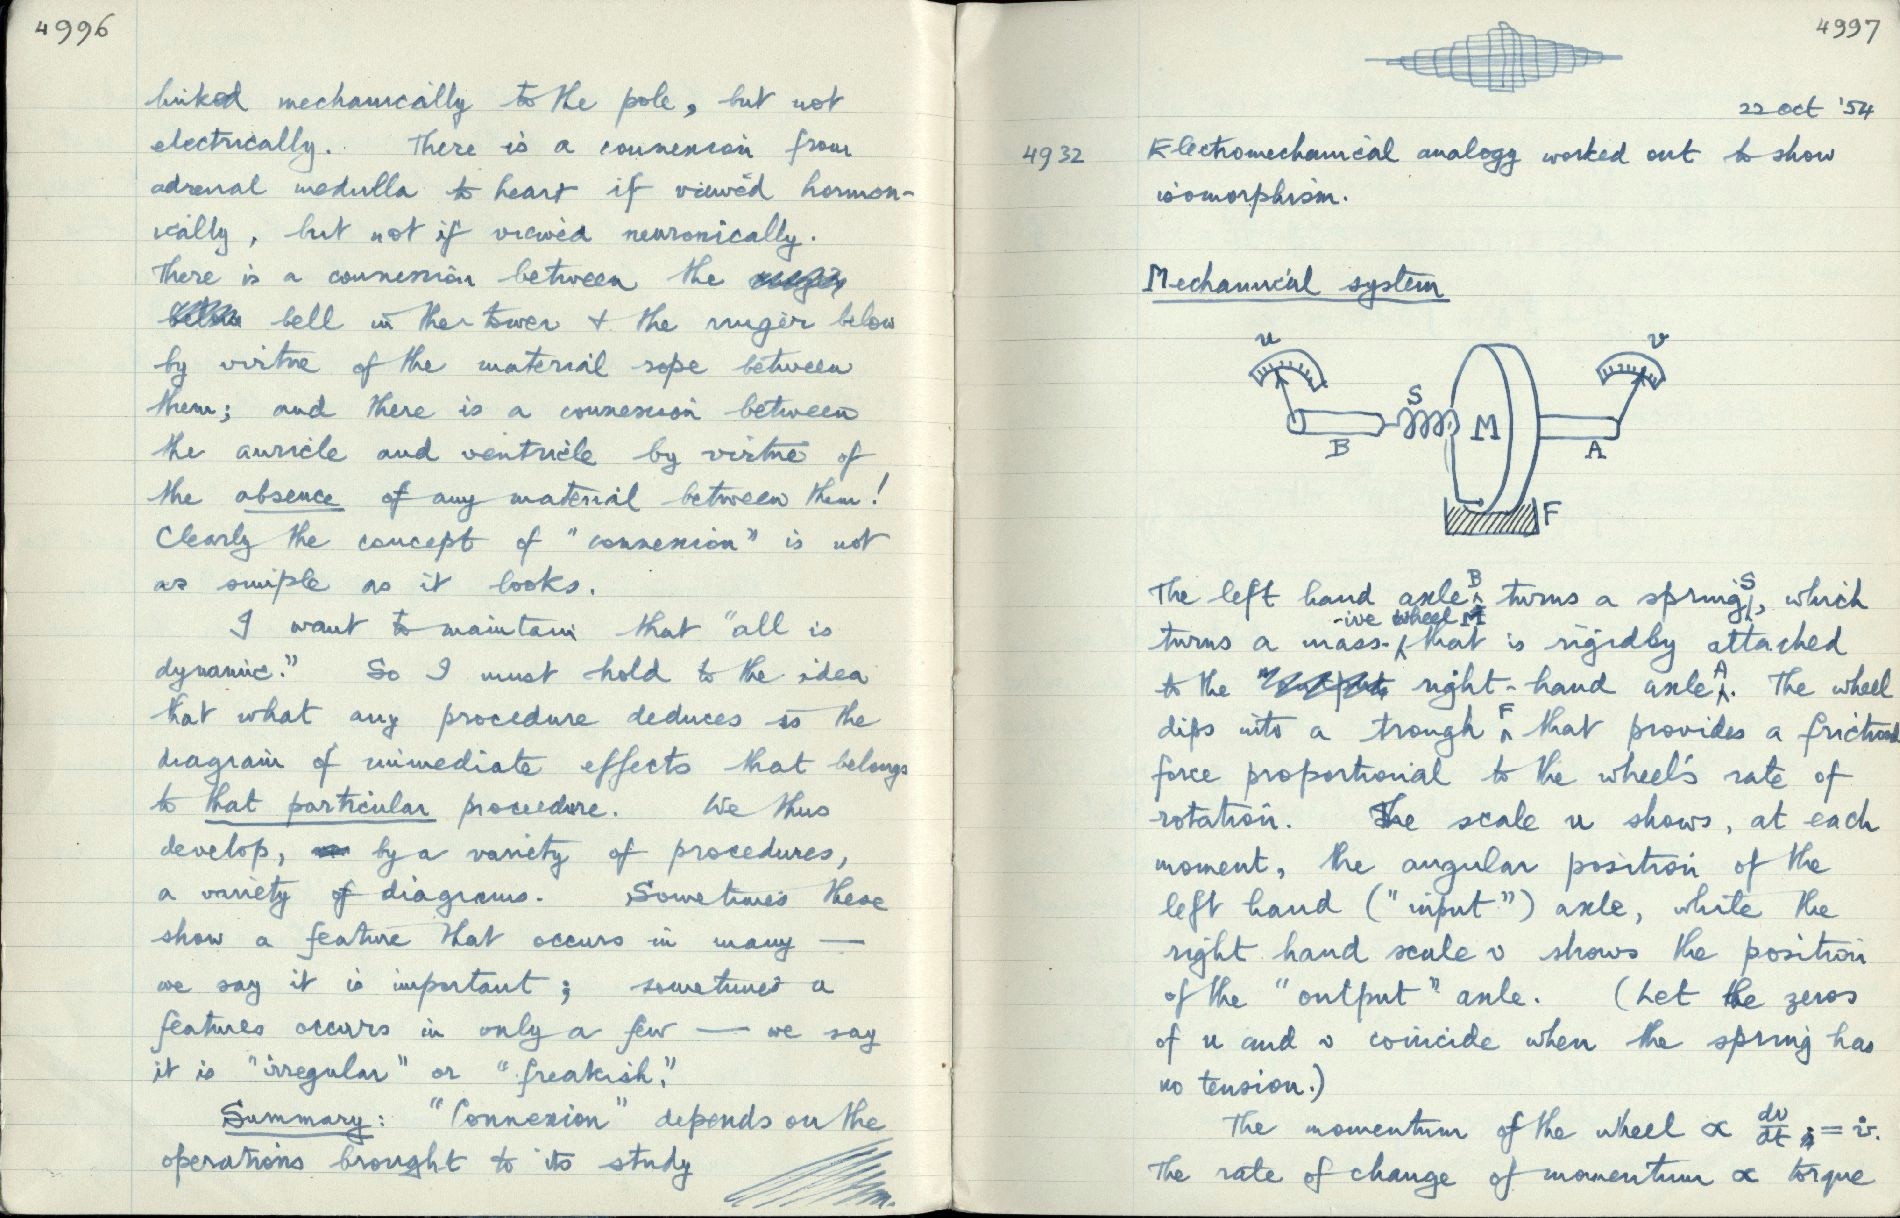 4996
linked mechanically to the pole, but not
electrically. There is a connexion from
adrenal medulla to heart if viewed hormon-
ically, but not if viewed neuronically.
There is a connexion between the
bell in the tower & the ringer below
by virtue of the material rope between
them; and there is a connexion between
the auricle and ventricle by virtue of
the absence of any material between them!
Clearly the concept of "connexion" is not
as simple as it looks.
I want to maintain that "all is
dynamic." So I must hold to the idea
that what any procedure deduces is the
diagram of immediate effects that belongs
to that particular procedure. We thus
develop, by a variety of procedures,
a variety of diagrams. Sometimes these
show a feature that occurs in many —
we say it is important; sometimes a
features occurs in only a few — we say
it is "irregular" or "freakish."
Summary: "Connexion" depends on the
operations brought to its study
4997
22 Oct '54
4932 Electromechanical analogy worked out to show
isomorphism.
Mechanical system
u v
S
M
B A
F
The left hand axle B turns a spring S, which
turns a mass-ive wheel M that is rigidly attached
to the right-hand axle A. The wheel
dips into a trough F that provides a frictional
force proportional to the wheel's rate of
rotation. The scale u shows, at each
moment, the angular position of the
left hand ("input") axle, while the
right hand scale v shows the position
of the "output" axle. (Let the zeros
of u and v coincide when the spring has
no tension.)
The momentum of the wheel ∝ dv/dt = v̇.
The rate of change of momentum ∝ torque